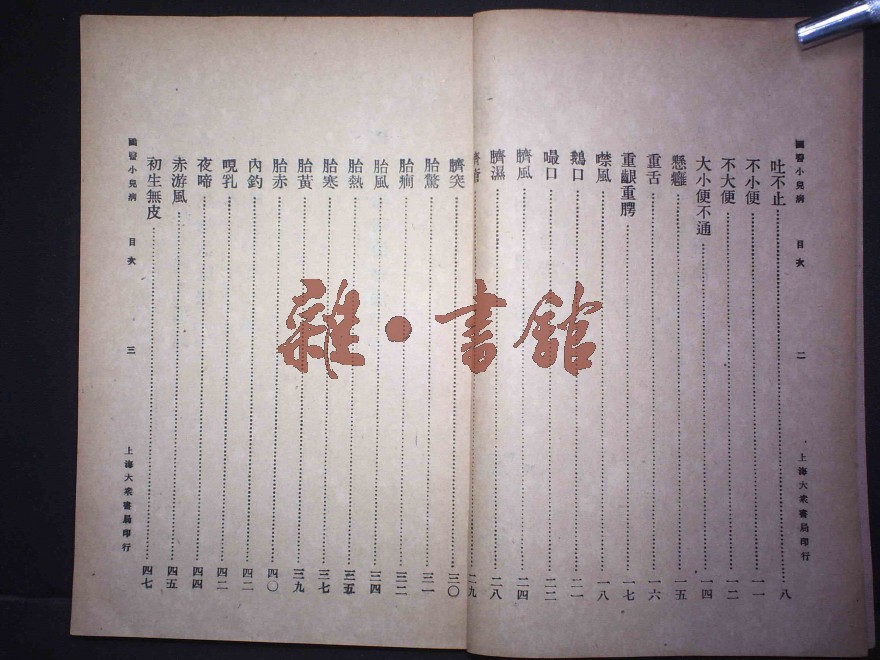 國醫小兒病 目次 二 上海大衆書局印行
吐不止 八
不小便 一一
不大便 一二
大小便不通 一四
懸癰 一五
重舌 一六
重齦重腭 一七
噤風 一八
鵝口 二一
嘬口 二三
臍風 二四
臍濕 二八
臍瘡 二九
臍突 三〇
胎驚 三一
胎癇 三二
胎風 三四
胎熱 三五
胎寒 三七
胎黃 三九
胎赤 四〇
內釣 四二
哯乳 四二
夜啼 四四
赤游風 四五
初生無皮 四七
國醫小兒病 目次 三 上海大衆書局印行
雜·書館